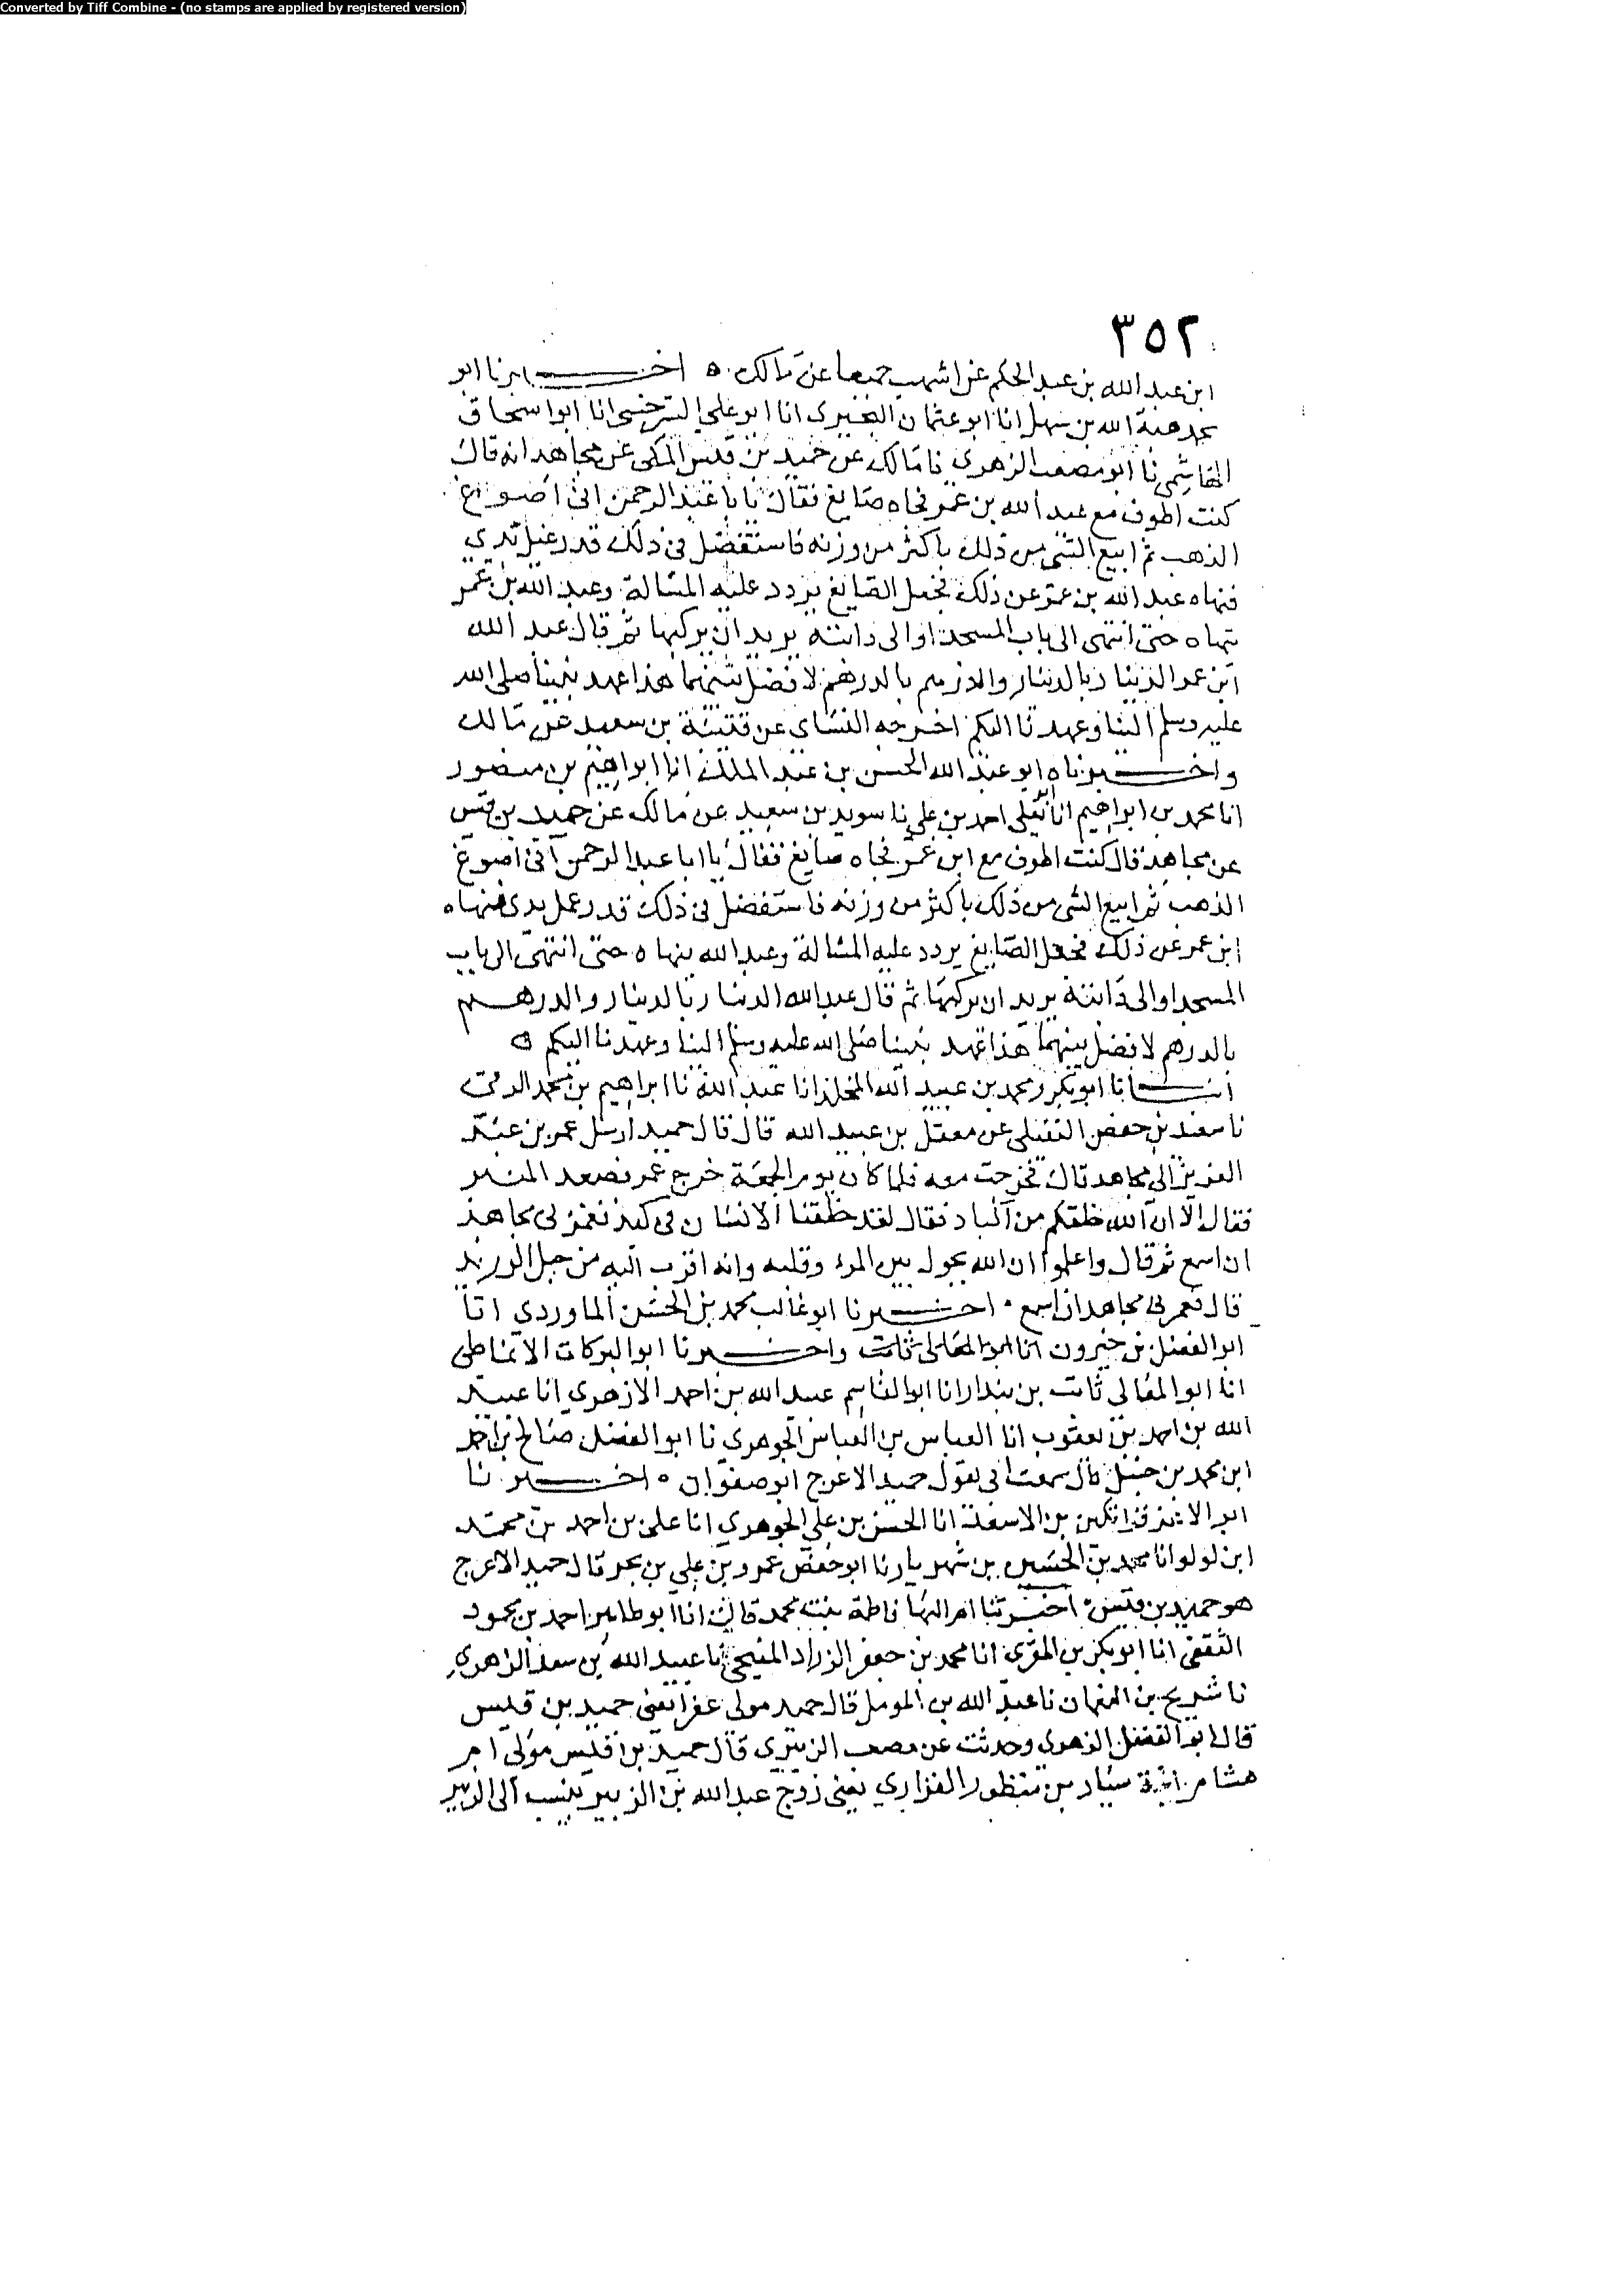 Converted by Tiff Combine - (no stamps are applied by registered version)
٣٥٢
ابن عبد الله بن عبد الحكم عن اشهب جميعا عن مالك ه اخبرنا ابو
محمد هبة الله بن سهل انا ابو عثمان البحيري انا ابو علي السرخسي انا ابو اسحاق
الهاشمي نا ابو مصعب الزهري نا مالك عن حميد بن قيس المكي عن مجاهد انه قال
كنت اطوف مع عبد الله بن عمر فجاه صايغ فقال يا با عبد الرحمن اني اصوغ
الذهب ثم ابيع الشي من ذلك باكثر من وزنه فاستفضل في ذلك قدر عمل يدي
فنهاه عبد الله بن عمر عن ذلك فجعل الصايغ يردد عليه المسالة وعبد الله بن عمر
ينهاه حتى انتهى الى باب المسجد او الى دابته يريد ان يركبها ثم قال عبد الله
ابن عمر الدينار بالدينار والدرهم بالدرهم لا فضل بينهما هذا عهد نبينا صلى الله
عليه وسلم الينا وعهدنا اليكم اخرجه النساي عن قتيبة بن سعيد عن مالك
واخبرناه ابو عبد الله الحسن بن عبد الملك انا ابراهيم بن منصور
انا محمد بن ابراهيم انا ابو يعلى احمد بن علي نا سويد بن سعيد عن مالك عن حميد بن قيس
عن مجاهد قال كنت اطوف مع ابن عمر فجاه صايغ فقال يا ابا عبد الرحمن اني اصوغ
الذهب ثم ابيع الشي من ذلك باكثر من وزنه فاستفضل في ذلك قدر عمل يدي فنهاه
ابن عمر عن ذلك فجعل الصايغ يردد عليه المسالة وعبد الله ينهاه حتى انتهى الى باب
المسجد او الى دابته يريد ان يركبها ثم قال عبد الله الدينار بالدينار والدرهم
بالدرهم لا فضل بينهما هذا عهد نبينا صلى الله عليه وسلم الينا وعهدنا اليكم ه
انبانا ابو بكر محمد بن عبيد الله انا عبد الله نا ابراهيم بن محمد
نا سعيد بن حفص النفيلي عن معقل بن عبيد الله قال قال حميد ارسل عمر بن عبد
العزيز الى مجاهد قال فخرجت معه فلما كان يوم الجمعة خرج عمر فصعد المنبر
فقال الا ان الله خلقكم من فقال لقد خلقنا الانسان في كبد فغمز لي مجاهد
ان اسمع ثم قال واعلموا ان الله يحول بين المرء وقلبه وانه اقرب اليه من حبل الوريد
قال فغمز لي مجاهد ان اسمع ه اخبرنا ابو غالب محمد بن الحسن الماوردي انا
ابو الفضل بن خيرون انا ثابت واخبرنا ابو البركات الانماطي
انا ابو المعالي ثابت بن بندار انا ابو القاسم عبيد الله بن احمد الازهري انا عبيد
الله بن احمد بن يعقوب انا العباس بن العباس الجوهري نا ابو الفضل صالح بن احمد
ابن محمد بن حنبل قال سمعت ابي يقول حميد الاعرج ابو صفوان ه اخبرنا
ابو الاعز قراتكين بن الاسعد انا الحسن بن علي الجوهري انا علي بن احمد بن محمد
ابن لولو انا محمد بن الحسين بن شهريار نا ابو حفص عمرو بن علي بن بحر قال حميد الاعرج
هو حميد بن قيس ه اخبرتنا ام البها فاطمة بنت محمد قالت انا ابو طاهر احمد بن محمود
الثقفي انا ابو بكر بن المقري انا محمد بن جعفر الزراد المنبجي نا عبيد الله بن سعد الزهري
نا شريح بن النعمان نا عبد الله بن المومل قال حميد مولى عفرا يعني حميد بن قيس
قال ابو الفضل الزهري وحدثت عن مصعب الزبيري قال حميد بن قيس مولى ام
هشام ابنة سيار بن منظور الفزاري يعني زوج عبد الله بن الزبير ينسب الى الزبير